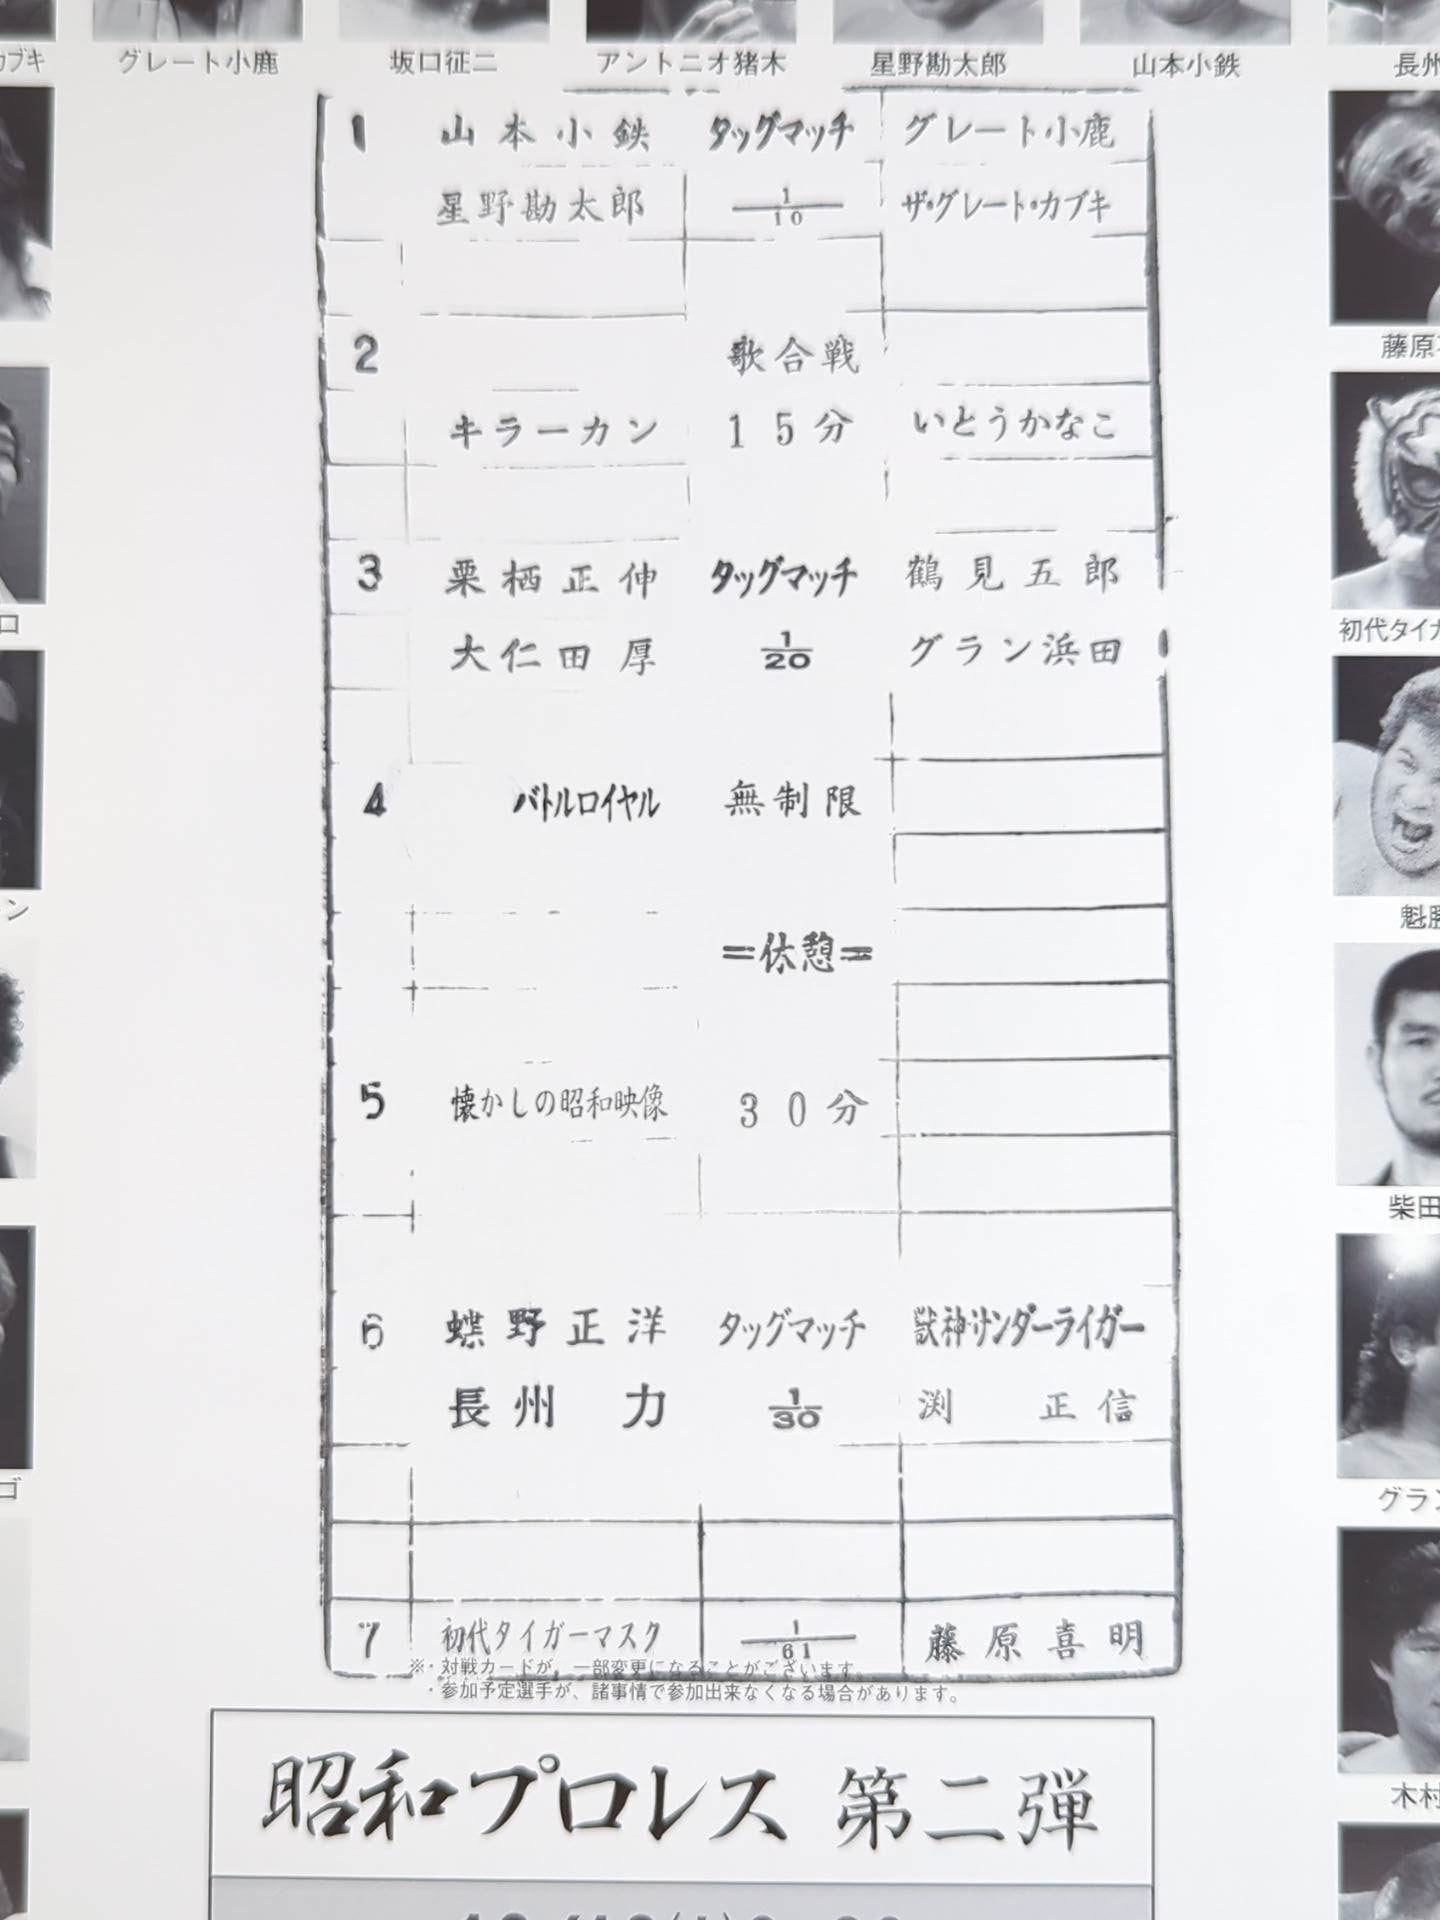 グレート小鹿 坂口征二 アントニオ猪木 星野勘太郎 山本小鉄
1 山本小鉄 タッグマッチ グレート小鹿
星野勘太郎 1/10 ザ・グレート・カブキ
2 歌合戦
キラーカン 15分 いとうかなこ
3 栗栖正伸 タッグマッチ 鶴見五郎
大仁田厚 1/20 グラン浜田
4 バトルロイヤル 無制限
=休憩=
5 懐かしの昭和映像 30分
6 蝶野正洋 タッグマッチ 獣神サンダーライガー
長州 力 1/30 渕 正信
7 初代タイガーマスク 1/61 藤原喜明
※・対戦カードが、一部変更になることがございます。
・参加予定選手が、諸事情で参加出来なくなる場合があります。
昭和プロレス 第二弾
カブキ
長州
藤原
初代タイガ
魁勝
柴田
グラン
木村
ロ
ン
ゴ